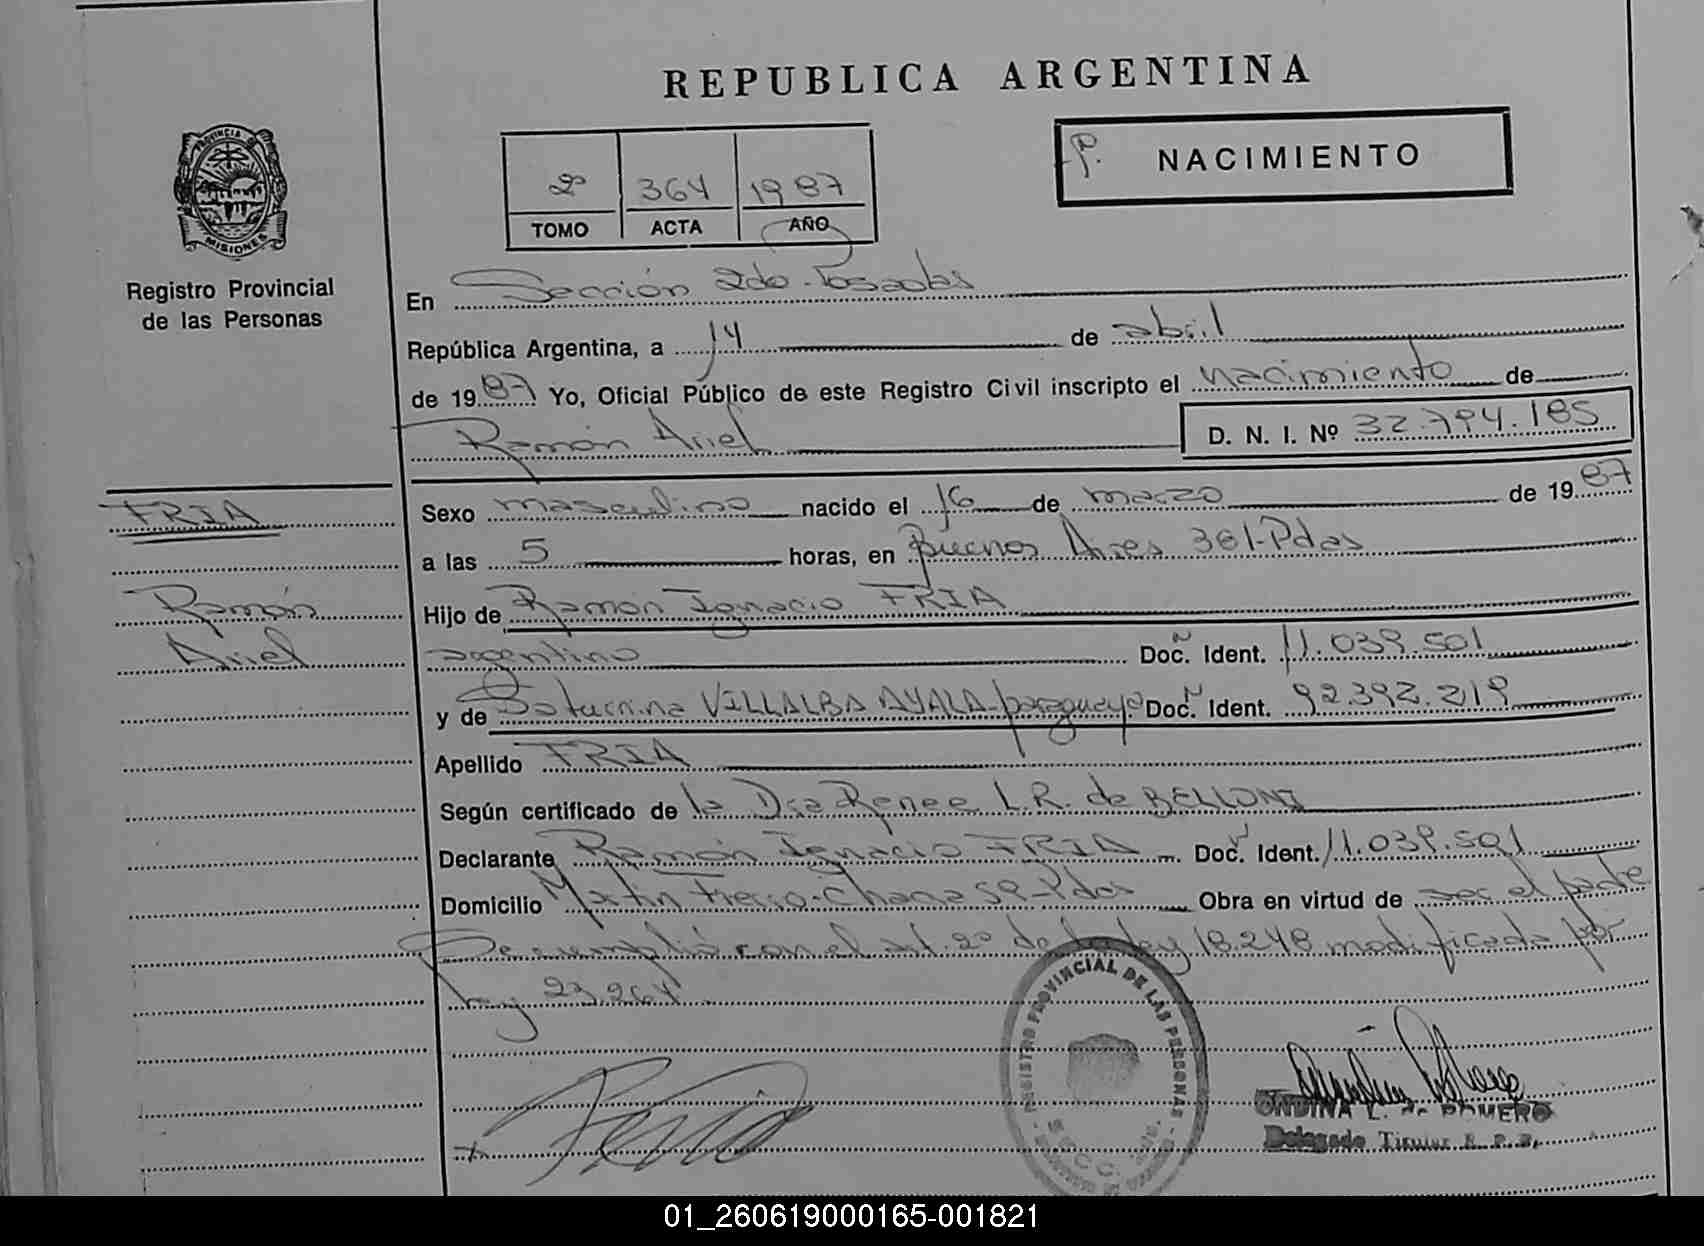 REPUBLICA ARGENTINA
PROVINCIA DE
MISIONES
Registro Provincial
de las Personas
2º 364 1987
TOMO ACTA AÑO
NACIMIENTO
En Sección 2do - Posadas
República Argentina, a 14 de abril
de 1987 Yo, Oficial Público de este Registro Civil inscripto el nacimiento de
Ramón Ariel D. N. I. Nº 32.794.185
FRIA
Ramón
Ariel
Sexo masculino nacido el 16 de marzo de 1987
a las 5 horas, en Buenos Aires 361-Pdas
Hijo de Ramón Ignacio FRIA
argentino Doc. Ident. 11.039.501
y de Saturnina VILLALBA AYALA - paraguaya Doc. Ident. 92.392.219
Apellido FRIA
Según certificado de la Dra Renee L.R. de BELLONI
Declarante Ramón Ignacio FRIA Doc. Ident. 11.039.501
Domicilio Martin Fierro-Chaca Pdas Obra en virtud de ser el padre
Se cumplió con el art. 2º de la ley 18.248 modificada por
ley 23.264
REGISTRO PROVINCIAL DE LAS PERSONAS
ONDINA L. de ROMERO
Delegado Titular R. P. P.
01_260619000165-001821